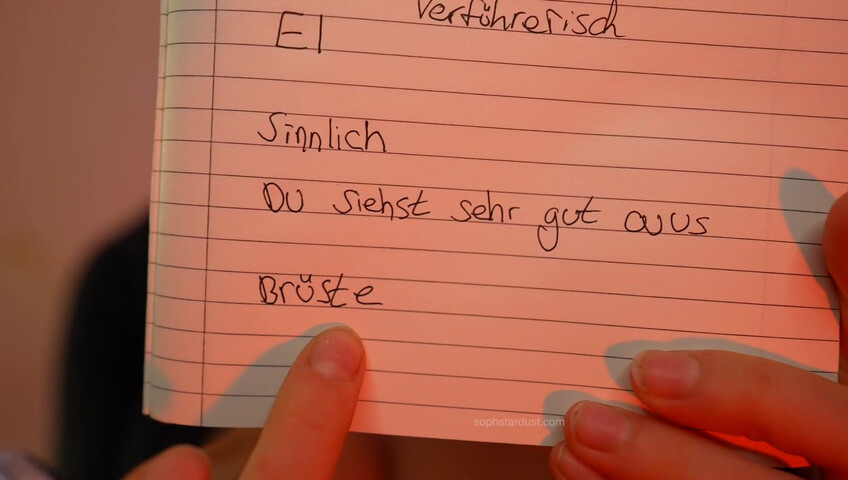 verführerisch
EI
Sinnlich
Du siehst sehr gut aus
Brüste
sophstardust.com